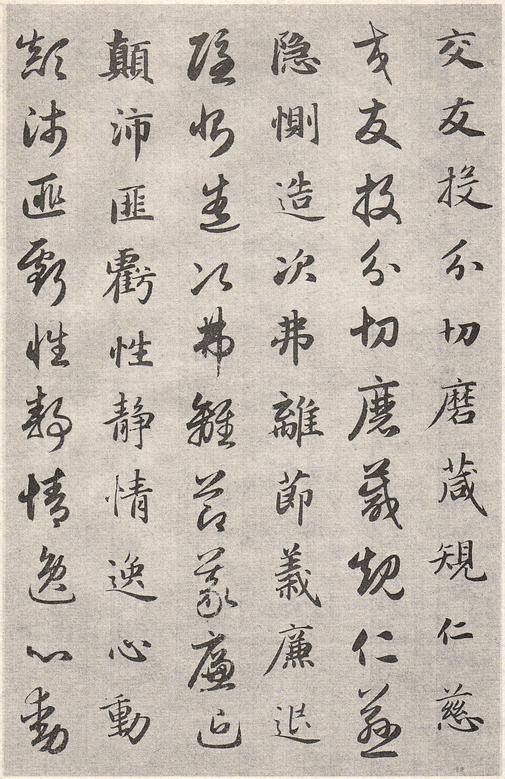 交友投分切磨葴規仁慈
交友投分切磨箴規仁慈
隐惻造次弗離節義廉退
隱惻造次弗離節義廉退
顛沛匪虧性静情逸心動
顛沛匪虧性靜情逸心動